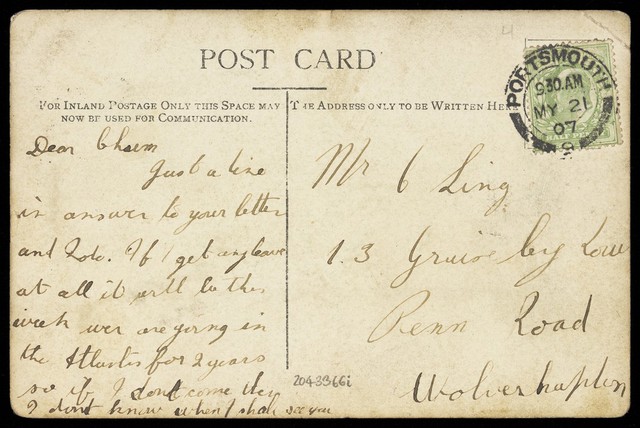 POST CARD
FOR INLAND POSTAGE ONLY THIS SPACE MAY
NOW BE USED FOR COMMUNICATION.
THE ADDRESS ONLY TO BE WRITTEN HERE
PORTSMOUTH
930.AM
MY 21
07
9
Dear Chum
Just a line
in answer to your letter
and If I get any leave
at all it will be this
week wer are going in
the for 2 years
so if I dont come then
I dont know when I shall see you
Mr C Ling
1.3
Penn Road
Wolverhapton
2043366i